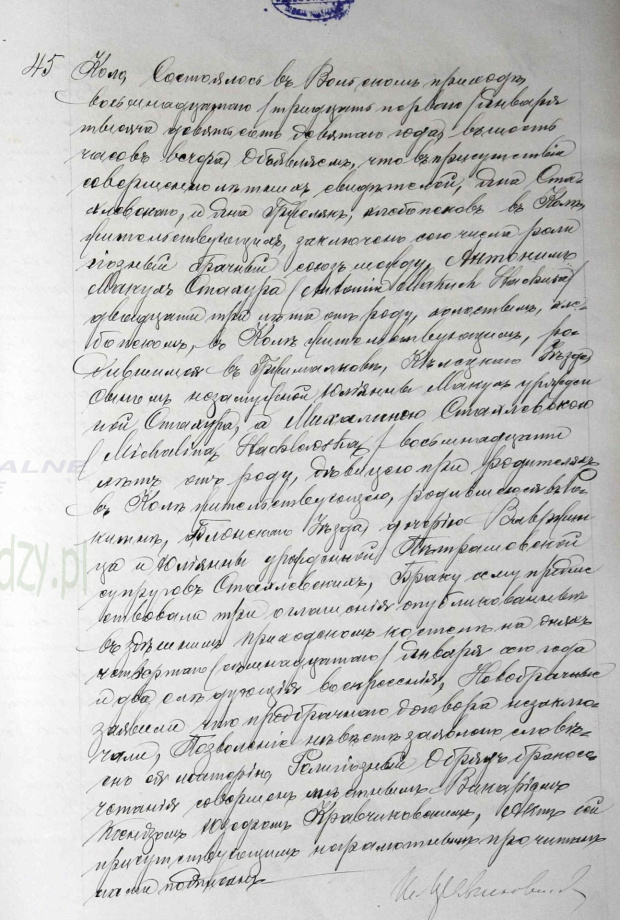 45 Коло, Состоялось въ Вольскомъ приходѣ
восьмнадцатаго /тридцать перваго/ Января
тысяча девятьсотъ девятаго года, въ шесть
часовъ вечера, Объявляемъ, что въ присутствіи
совершеннолѣтнихъ свидѣтелей, Яна Ста-
хловскаго, и Яна, хлебопековъ въ Колѣ
жительствующихъ, заключенъ сего числа рели
гіозный брачный союзъ между Антонимъ
Макухъ Стахура /Antonim Makuch Stachura/
двадцати три лѣта отъ роду, холостымъ, хле-
въ Колѣ жительствующимъ, ро-
дившимся въ Уѣзда
сыномъ незамужней Юліянны Макухъ урожден
ной Стахура, а Михалиною Стахловскою
/Michalina Stachlowska/ восьмнадцати
лѣтъ отъ роду, дѣвицею при родителяхъ
въ Колѣ жительствующею, родившеюся въ
Блонскаго Уѣзда, дочерью Ваврин
ца и Юліянны урожденной
супруговъ Стахловскихъ, Браку сему предше
ствовали три оглашенія опубликованныя
въ здѣшнемъ приходскомъ костелѣ на дняхъ
четвертаго /семнадцатаго/ Января сего года
и два слѣдующія воскресенія, Новобрачные
заявили что предбрачнаго договора незаклю-
чали, Позволеніе невѣстѣ заявлено словес-
но ея матерію, Религіозный Обрядъ бракосо-
четанія совершенъ мѣстнымъ Викаріемъ
Ксендзомъ Кравчиковскимъ, Актъ сей
присутствующимъ неграмотнымъ прочитанъ
нами подписанъ
ALNE
dzy.pl